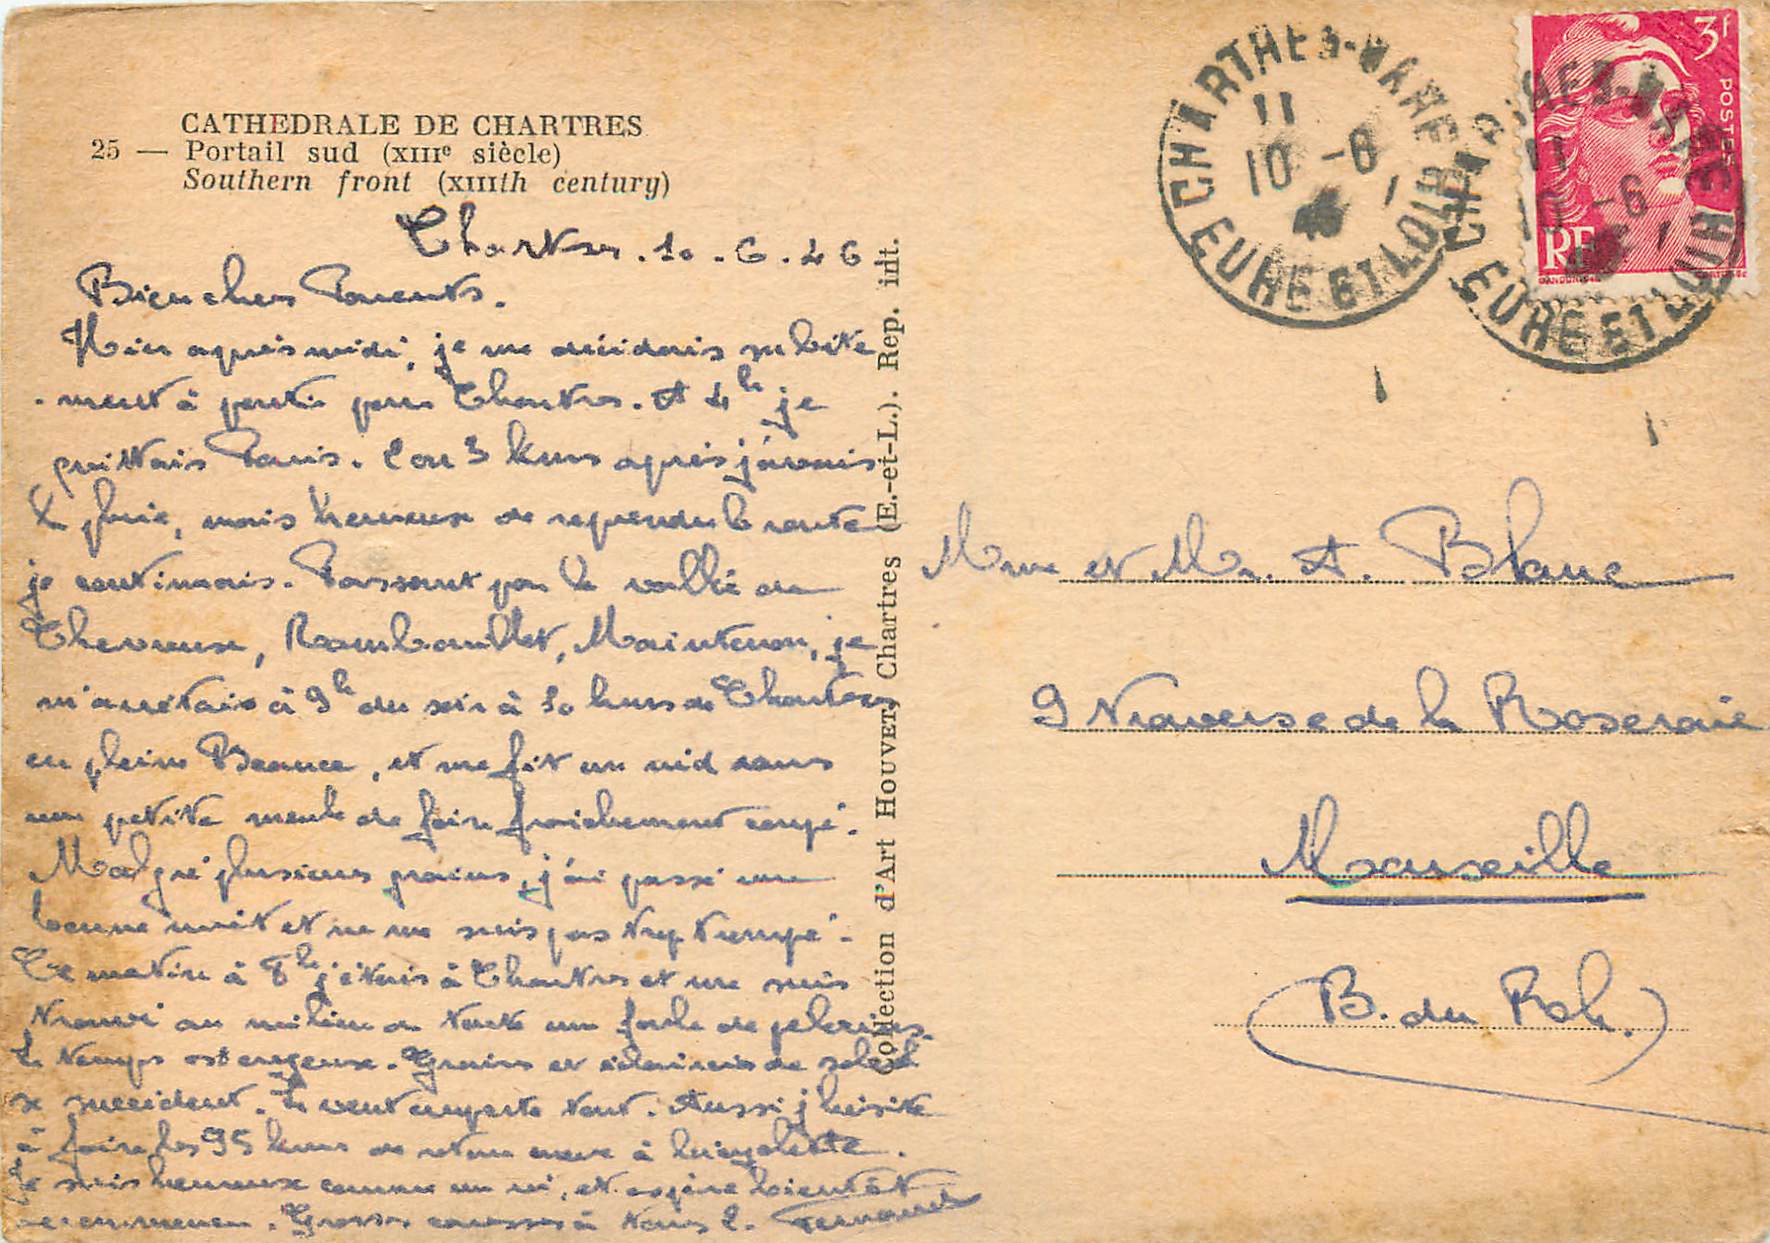 CATHEDRALE DE CHARTRES
25 — Portail sud (XIIIe siècle)
Southern front (XIIIth century)
Chartres. 10 - 6 - 46
Bien chers Parents.
Hier après midi, je me décidais subite
-ment à partir pour Chartres. A 4h je
quittais Paris. 2 ou 3 kms après j'avais
la pluie, mais heureux de reprendre la route
je continuais. Passant par la vallée de
Chevreuse, Rambouillet, Maintenon, je
m'arrêtais à 9h du soir à 10 kms de Chartres
en pleine Beauce, et me fit un nid dans
une petite meule de foin fraichement coupé.
Malgré plusieurs grains, j'ai passé une
bonne nuit et ne me suis pas trop trempé.
Ce matin à 8h j'étais à Chartres et me suis
trouvé au milieu de toute une foule de pelerins.
Le temps est orageux. Grains et éclaircies de soleil
se succèdent. Le vent emporte tout. Aussi j'hésite
à faire les 95 kms de retour à bicyclette.
Je suis heureux comme un roi, et espère bientôt
recommencer. Grosses caresses à tous 2. Fernand
Collection d'Art HOUVET, Chartres (E.-et-L.). Rep. idt.
CHARTRES-GARE
11
10 -6
46
EURE ET LOIR
3f
POSTES
RF
GANDON
CHARTRES-GARE
11
10 -6
46
EURE ET LOIR
Mme et Mr. A. Blanc
9 traverse de la Roseraie
Marseille
(B. du Rh.)